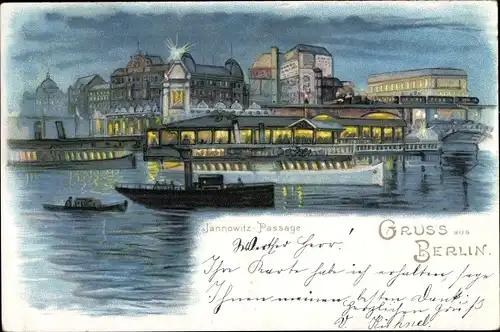 Jannowitz-Passage
GRUSS aus
BERLIN.
Werther Herr!
Ihre Karte hab ich erhalten, sage
Ihnen meinen besten Dank.
Herzlichen Gruß